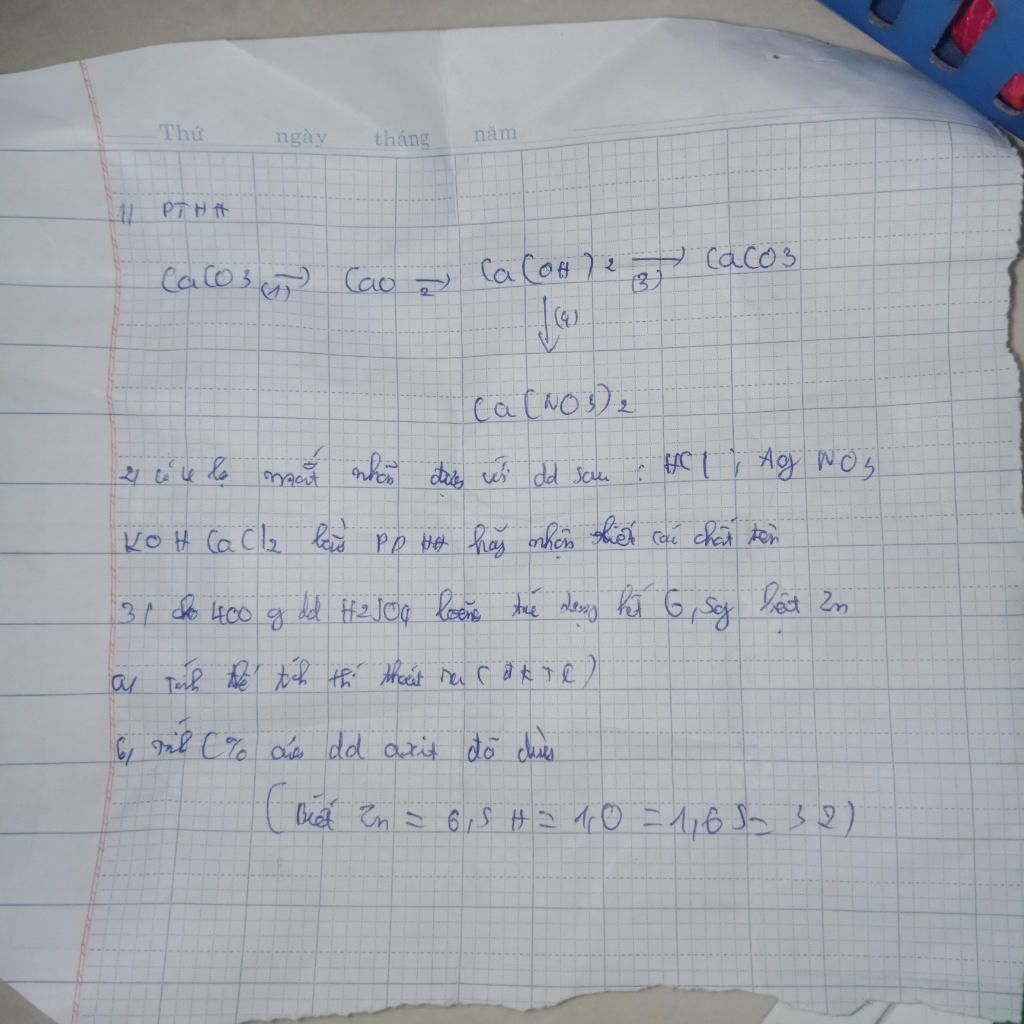 Thứ ngày tháng năm
1) PTHH
CaCO3 (1)→ CaO 2→ Ca(OH)2 (3)→ CaCO3
↓(4)
Ca(NO3)2
2) Có 4 lọ mất nhãn đựng với dd sau : HCl ; AgNO3
KOH CaCl2 bằng PPHH hãy nhận biết các chất trên
3) cho 400 g dd H2SO4 loãng tác dụng hết 6,5g bột Zn
a) tính thể tích khí thoát ra (đktc)
b) tính C% của dd axit đã dùng
(Biết Zn = 6,5 H = 1,0 = 1,6 S = 32)